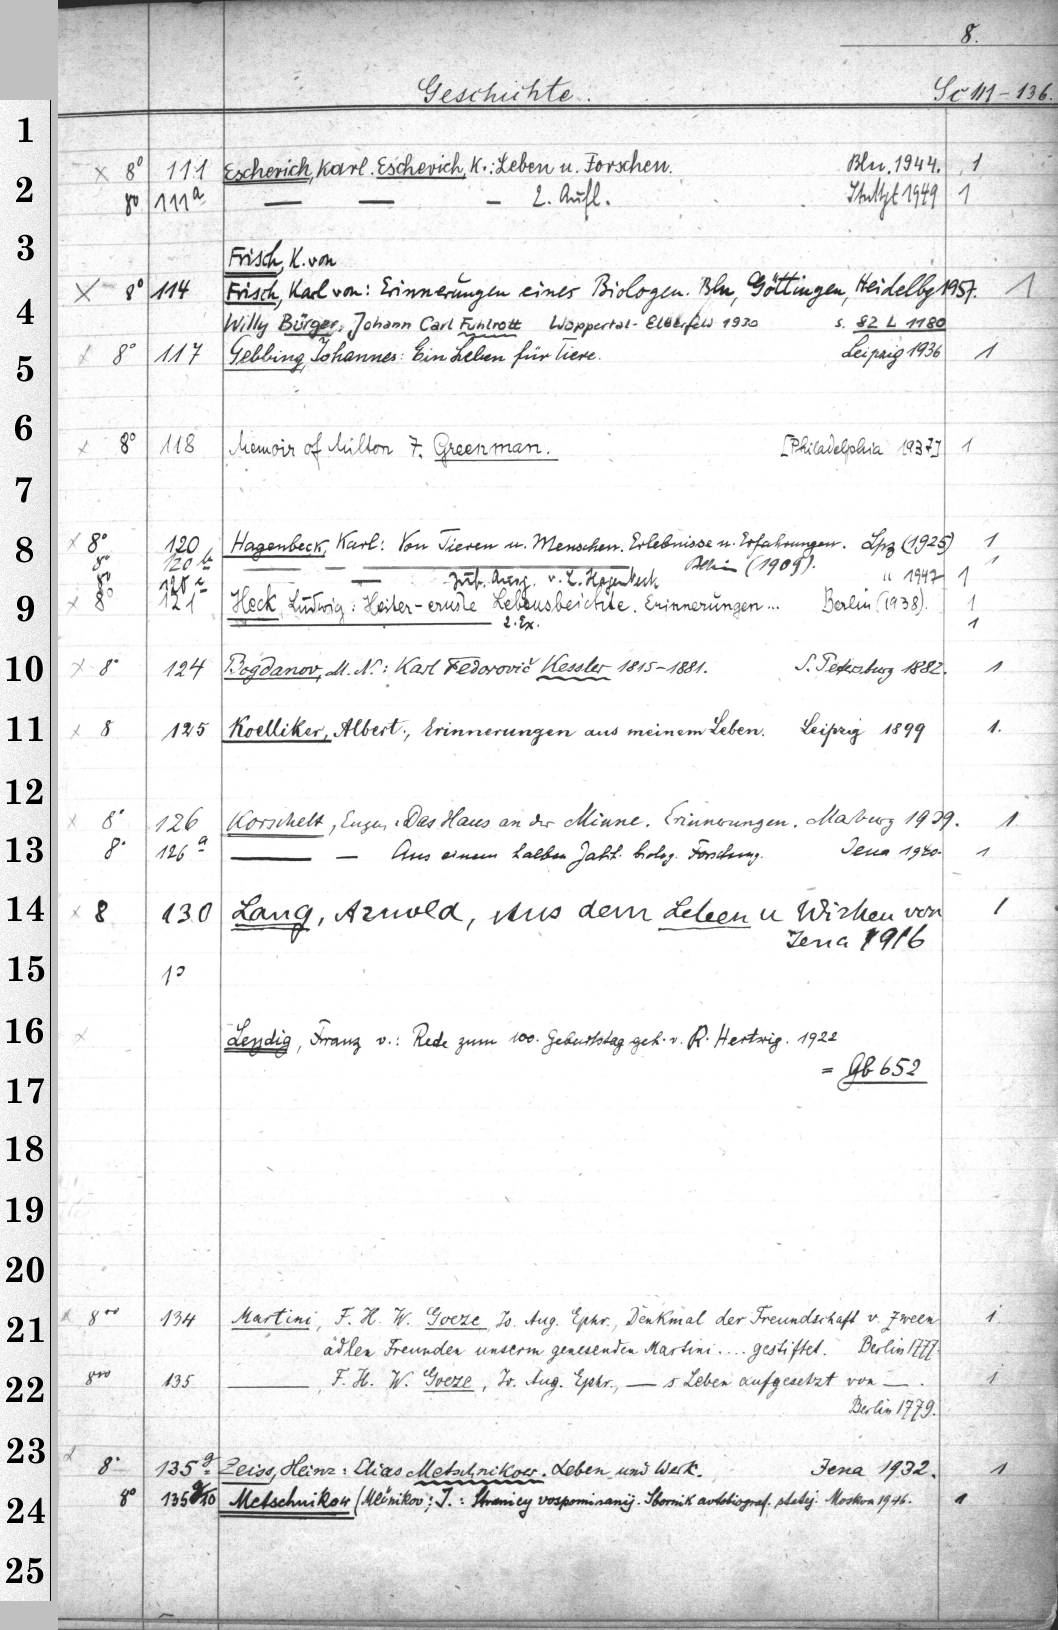 8.
Geschichte. Sc 111-136.
1
x 8° 111 Escherich, Karl. Escherich, K.: Leben u. Forschen. Bln. 1944. 1
2
8° 111a — — — 2. Aufl. Stuttgt 1949 1
3
Frisch, K. von
x 8° 114 Frisch, Karl von: Erinnerungen eines Biologen. Bln, Göttingen, Heidelbg 1957. 1
4
Willy Bürger, Johann Carl Fuhlrott Wuppertal-Elberfeld 1930 s. 82 L 1180
x 8° 117 Gebbing, Johannes: Ein Leben für Tiere. Leipzig 1936 1
5
6
x 8° 118 Memoir of Milton F. Greenman. [Philadelphia 1937] 1
7
x 8° 120 Hagenbeck, Karl: Von Tieren u. Menschen. Erlebnisse u. Erfahrungen. Lpz (1925) 1
8
8° 120 b — — Berlin (1909). 1
8° 120 c — Ausg. v. L. Hagenbeck " 1947 1
9
x 8° 121 Heck, Ludwig: Heiter-ernste Lebensbeichte. Erinnerungen... Berlin (1938). 1
— 2. Ex. 1
10
x 8° 124 Bogdanov, M. N.: Karl Fedorovič Kessler 1815-1881. S. Petersburg 1882. 1
11
x 8 125 Koelliker, Albert., Erinnerungen aus meinem Leben. Leipzig 1899 1.
12
x 8° 126 Korschelt, Eugen, Das Haus an der Minne. Erinnerungen. Marburg 1939. 1
13
8° 126a — — Aus einem halben Jahrh. biolog. Forschung. Jena 1940. 1
14
x 8 130 Lang, Arnold, Aus dem Leben u Wirken von 1
Jena 1916
15
1°
16
x Leydig, Franz v.: Rede zum 100. Geburtstag geh. v. R. Hertwig. 1922
= Gb 652
17
18
19
20
x 8°° 134 Martini, F. H. W. Goeze, Jo. Aug. Ephr., Denkmal der Freundschaft v. zween 1
21
ädlen Freunden unserm genesenden Martini.... gestiftet. Berlin 1777.
22
8°° 135 —, F. H. W. Goeze, Jo. Aug. Ephr., — s Leben aufgesetzt von —. 1
Berlin 1779.
23
x 8° 135g Zeiss, Heinz: Elias Metschnikow. Leben und Werk. Jena 1932. 1
24
8° 135 Metschnikow (Mečnikov), I.: Stranicy vospominanij. Sbornik avtobiograf. statej. Moskva 1946. 1
25